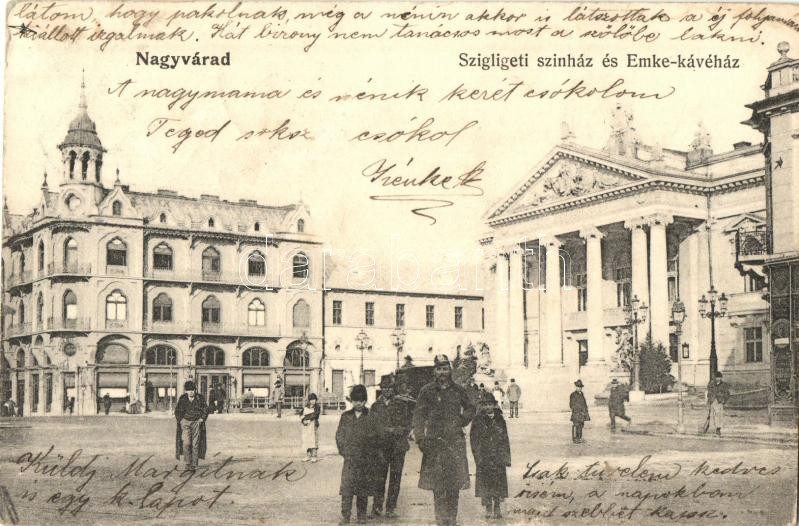 látom, hogy pakolnak, még a nénin akkor is látszottak a éj folyamán
kiállott izgalmak. Hát bizony nem tanácsos most a szőlőbe lakni.
Nagyvárad
Szigligeti szinház és Emke-kávéház
A nagymama és nénik kezét csókolom
Téged sokszor csókol
darabanth
Küldj Margitnak
is egy k. lapot.
Csak türelem kedves
öcsém, a napokban
majd szebbet kapsz.